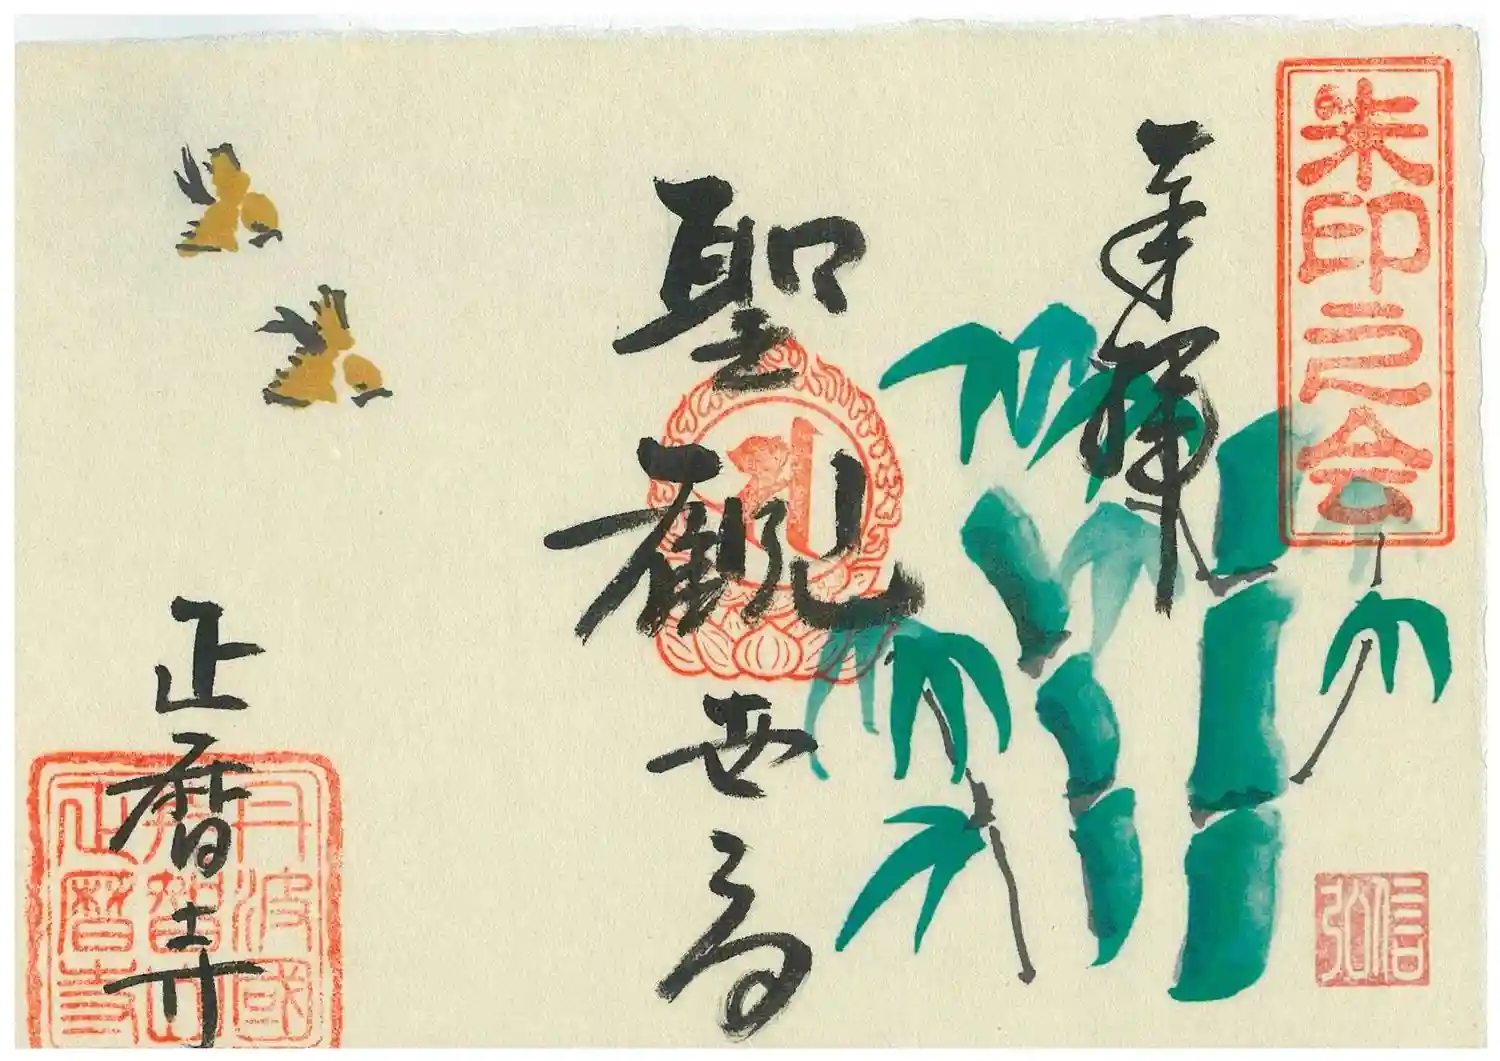 朱印之会
奉拝
信弘
聖観世音
正暦寺
丹波國
那智山
正暦寺